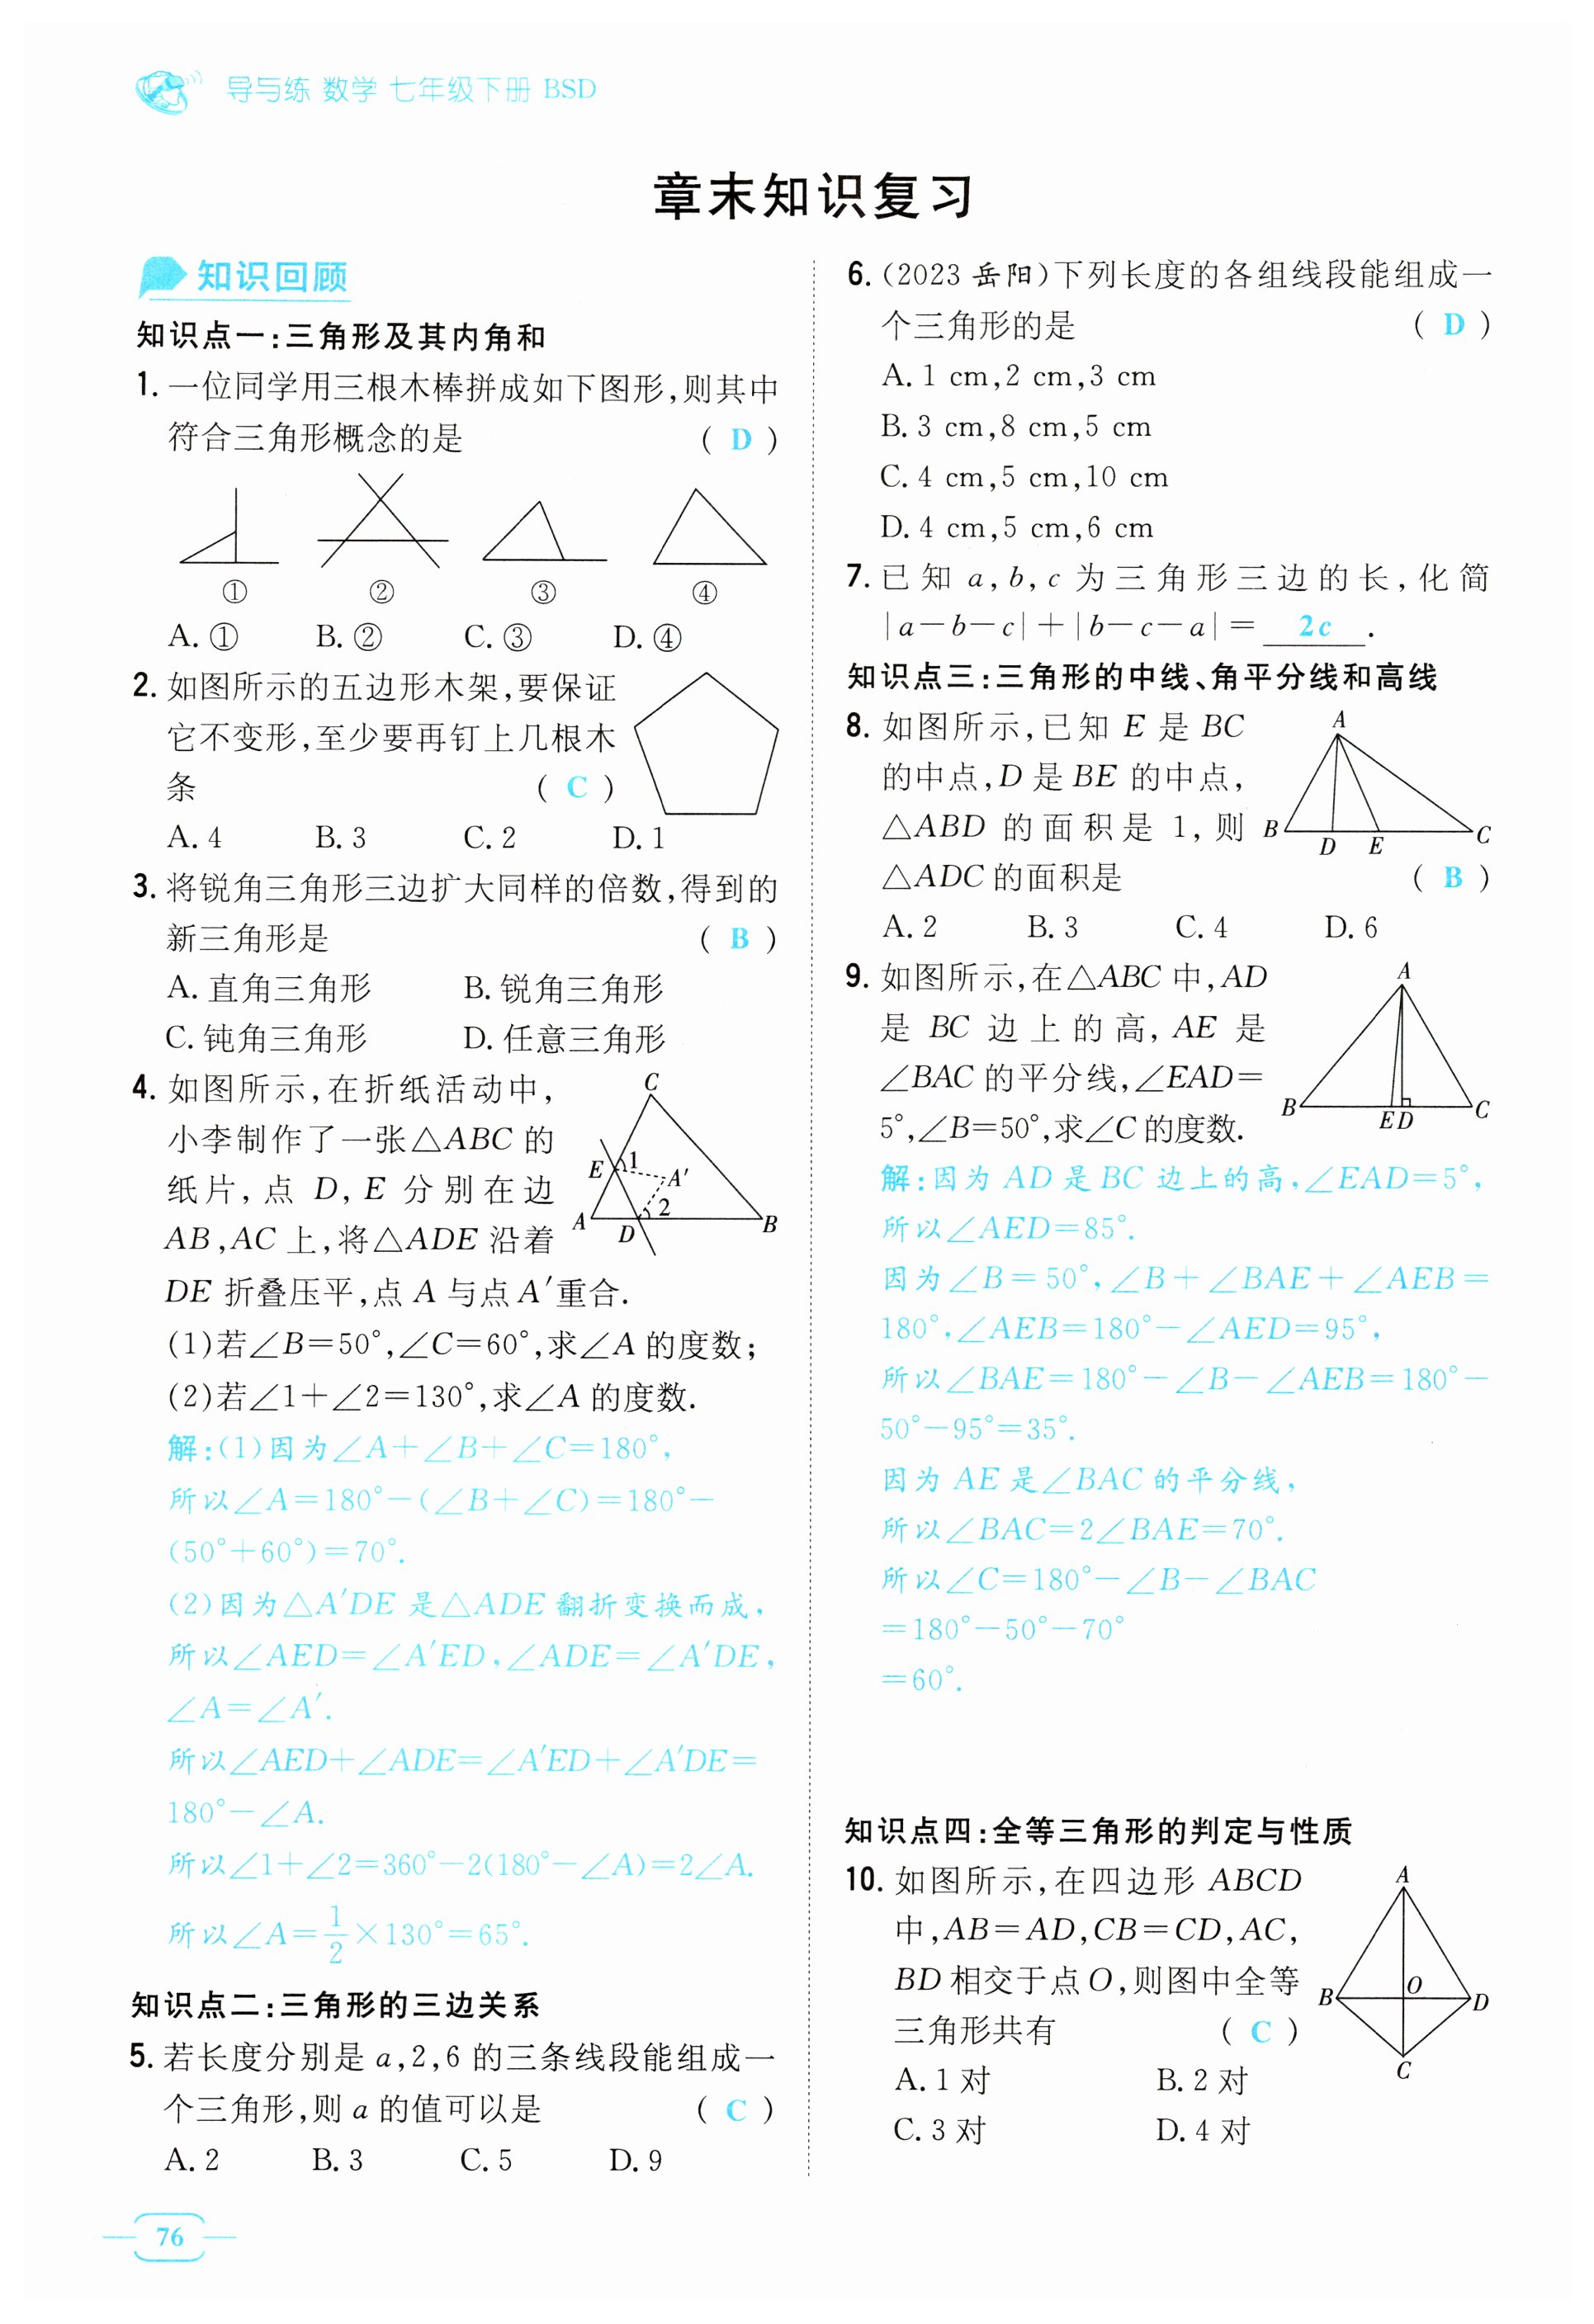 导与练 数学 七年级下册 BSD
章末知识复习
知识回顾
知识点一:三角形及其内角和
1. 一位同学用三根木棒拼成如下图形,则其中
符合三角形概念的是 ( D )
① ② ③ ④
A. ① B. ② C. ③ D. ④
2. 如图所示的五边形木架,要保证
它不变形,至少要再钉上几根木
条 ( C )
A. 4 B. 3 C. 2 D. 1
3. 将锐角三角形三边扩大同样的倍数,得到的
新三角形是 ( B )
A. 直角三角形 B. 锐角三角形
C. 钝角三角形 D. 任意三角形
4. 如图所示,在折纸活动中,
小李制作了一张△ABC 的
纸片, 点 D, E 分别在边
AB,AC 上,将△ADE 沿着
DE 折叠压平,点 A 与点 A′重合.
C
E 1 A′
2
A D B
(1)若∠B=50°,∠C=60°,求∠A 的度数;
(2)若∠1+∠2=130°,求∠A 的度数.
解:(1)因为∠A+∠B+∠C=180°,
所以∠A=180°-(∠B+∠C)=180°-
(50°+60°)=70°.
(2)因为△A′DE 是△ADE 翻折变换而成,
所以∠AED=∠A′ED,∠ADE=∠A′DE,
∠A=∠A′.
所以∠AED+∠ADE=∠A′ED+∠A′DE=
180°-∠A.
所以∠1+∠2=360°-2(180°-∠A)=2∠A.
所以∠A=1/2×130°=65°.
知识点二:三角形的三边关系
5. 若长度分别是 a,2,6 的三条线段能组成一
个三角形,则 a 的值可以是 ( C )
A. 2 B. 3 C. 5 D. 9
76
6. (2023 岳阳)下列长度的各组线段能组成一
个三角形的是 ( D )
A. 1 cm,2 cm,3 cm
B. 3 cm,8 cm,5 cm
C. 4 cm,5 cm,10 cm
D. 4 cm,5 cm,6 cm
7. 已知 a, b, c 为三角形三边的长, 化简
|a-b-c|+|b-c-a|= 2c .
知识点三:三角形的中线、角平分线和高线
8. 如图所示,已知 E 是 BC
的中点,D 是 BE 的中点,
△ABD 的面积是 1, 则
△ADC 的面积是 ( B )
A
B D E C
A. 2 B. 3 C. 4 D. 6
9. 如图所示,在△ABC 中,AD
是 BC 边上的高, AE 是
∠BAC 的平分线,∠EAD=
5°,∠B=50°,求∠C 的度数.
A
B E D C
解:因为 AD 是 BC 边上的高,∠EAD=5°,
所以∠AED=85°.
因为∠B=50°,∠B+∠BAE+∠AEB=
180°,∠AEB=180°-∠AED=95°,
所以∠BAE=180°-∠B-∠AEB=180°-
50°-95°=35°.
因为 AE 是∠BAC 的平分线,
所以∠BAC=2∠BAE=70°.
所以∠C=180°-∠B-∠BAC
=180°-50°-70°
=60°.
知识点四:全等三角形的判定与性质
10. 如图所示,在四边形 ABCD
中,AB=AD,CB=CD,AC,
BD 相交于点 O,则图中全等
三角形共有 ( C )
A
B O D
C
A. 1 对 B. 2 对
C. 3 对 D. 4 对